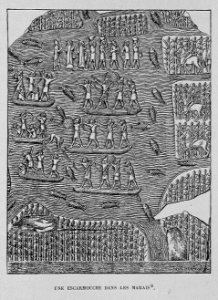 UNE ESCARMOUCHE DANS LES MARAIS